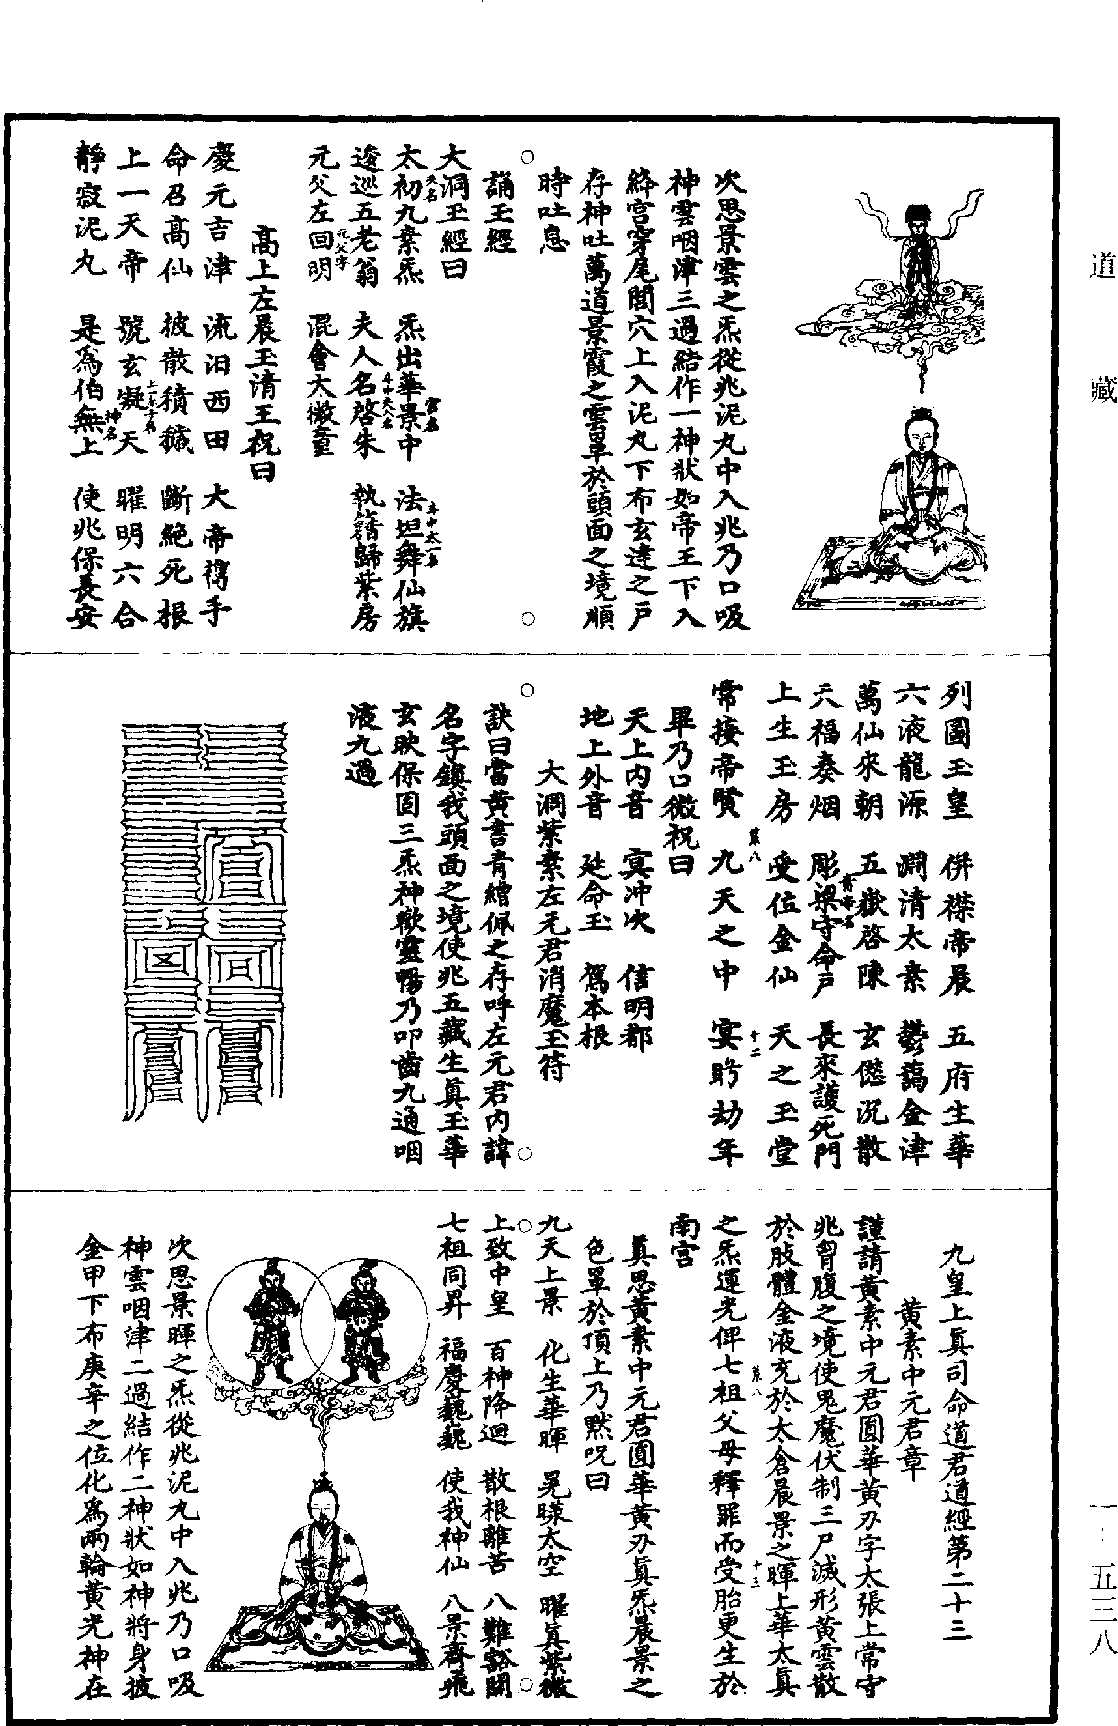 道藏
次思景雲之炁從兆泥丸中入兆乃口吸
神雲咽津三過結作一神狀如帝王下入
絳宮穿尾閭穴上入泥丸下布玄達之戶
存神吐萬道景霞之雲罩於頭面之境順
時吐息
誦玉經
大洞玉經曰
太初九素炁 炁出華景中 法坦舞仙旗
逡巡五老翁 夫人名啓朱 執籍歸紫房
元父左回明 混會大微童
高上左晨玉清王祝曰
慶元吉津 流汨西田 大帝攜手
命召高仙 披散積穢 斷絕死根
上一天帝 號玄凝天 曜明六合
靜寂泥丸 是爲伯無上 使兆保長安
列圖玉皇 併襟帝晨 五府生華
六液龍源 澗清太素 鬱藹金津
萬仙來朝 五嶽啓陳 玄僊沉散
天福奏烟 彫梁守命戶 長來護死門
上生玉房 受位金仙 天之玉堂
常接帝賢 九天之中 宴眄劫年
畢乃口微祝曰
天上內音 寞冲次 信明郡
地上外音 延命玉 駕本根
大洞紫素左元君消魔玉符
訣曰當黃書青繒佩之存呼左元君內諱
名字鎮我頭面之境使兆五藏生眞玉華
玄映保固三炁神歡靈暢乃叩齒九通咽
液九過
九皇上眞司命道君道經第二十三
黃素中元君章
謹請黃素中元君圓華黃刃字太張上常守
兆胷腹之境使鬼魔伏制三尸滅形黃雲散
於肢體金液充於太倉晨景之暉上華太眞
之炁運光俾七祖父母釋罪而受胎更生於
南宮
眞思黃素中元君圓華黃刃眞炁晨景之
色罩於頂上乃黙呪曰
九天上景 化生華暉 晃曜太空 曜眞紫微
上致中皇 百神降迴 散根離苦 八難豁開
七祖同昇 福慶巍巍 使我神仙 八景齊飛
次思景暉之炁從兆泥丸中入兆乃口吸
神雲咽津二過結作二神狀如神將身披
金甲下布庚辛之位化爲兩輪黃光神在
一·五三八